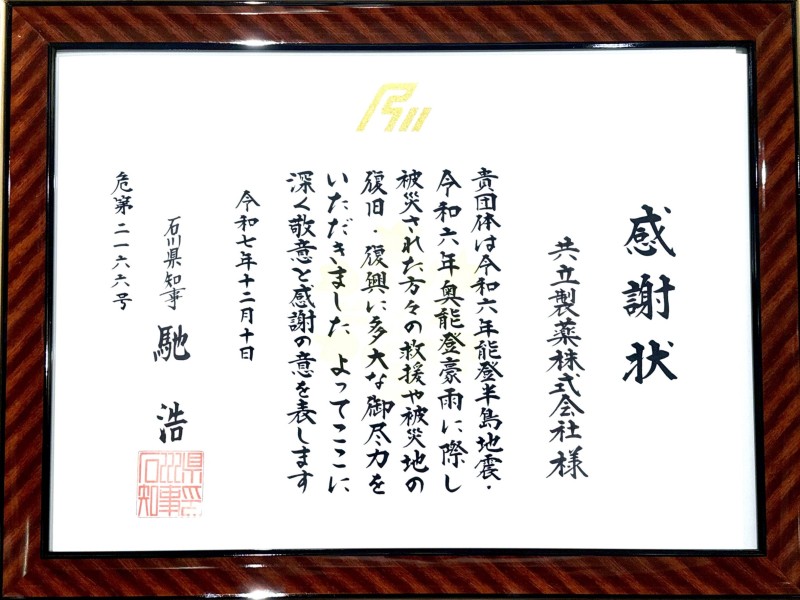 感謝状
共立製薬株式会社様
貴団体は令和六年能登半島地震・
令和六年奥能登豪雨に際し
被災された方々の救援や被災地の
復旧・復興に多大な御尽力を
いただきました よってここに
深く敬意と感謝の意を表します
令和七年十二月十日
石川県知事 馳 浩
石川県知事
危第二一六六号